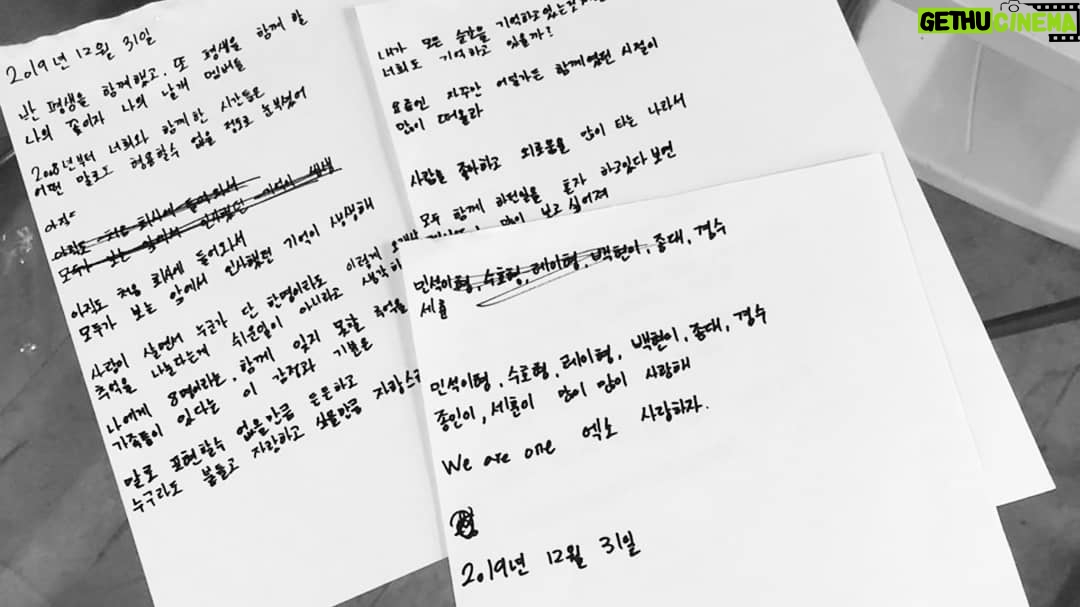 2019년 12월 31일
반 평생을 함께했고, 또 평생을 함께 할
나의 꽃이자 나의 날개 멤버들
2008년부터 너희와 함께한 시간들은
어떤 말로도 형용할수 없을 정도로 눈부셨어
아직
아직도 처음 회사에 들어와서
모두가 보는 앞에서 인사했던 기억이 생생
아직도 처음 회사에 들어와서
모두가 보는 앞에서 인사했던 기억이 생생해
사람이 살면서 누군가 단 한명이라도 이렇게
추억을 나눈다는게 쉬운일이 아니라고 생각하
나에게 8명이라는, 함께 잊지 못할 추억을
가족들이 있다는 이 감정과 기분은
말로 표현할수 없을만큼 든든하고
누구라도 붙들고 자랑하고 싶을만큼 자랑스
내가 모든 순간을 기억하고 있는것
너희도 기억하고 있을까?
요즘엔 자꾸만 어딜가든 함께였던 시절이
많이 떠올라
사람을 좋아하고 외로움을 많이 타는 나라서
모두 함께 하던일을 혼자 하고있다 보면
많이 보고 싶어져
민석이형, 수호형, 레이형, 백현이, 종대, 경수
세훈
민석이형, 수호형, 레이형, 백현이, 종대, 경수
종인이, 세훈이 많이 많이 사랑해
We are one 엑소 사랑하자.
2019년 12월 31일
GETHUCINEMA